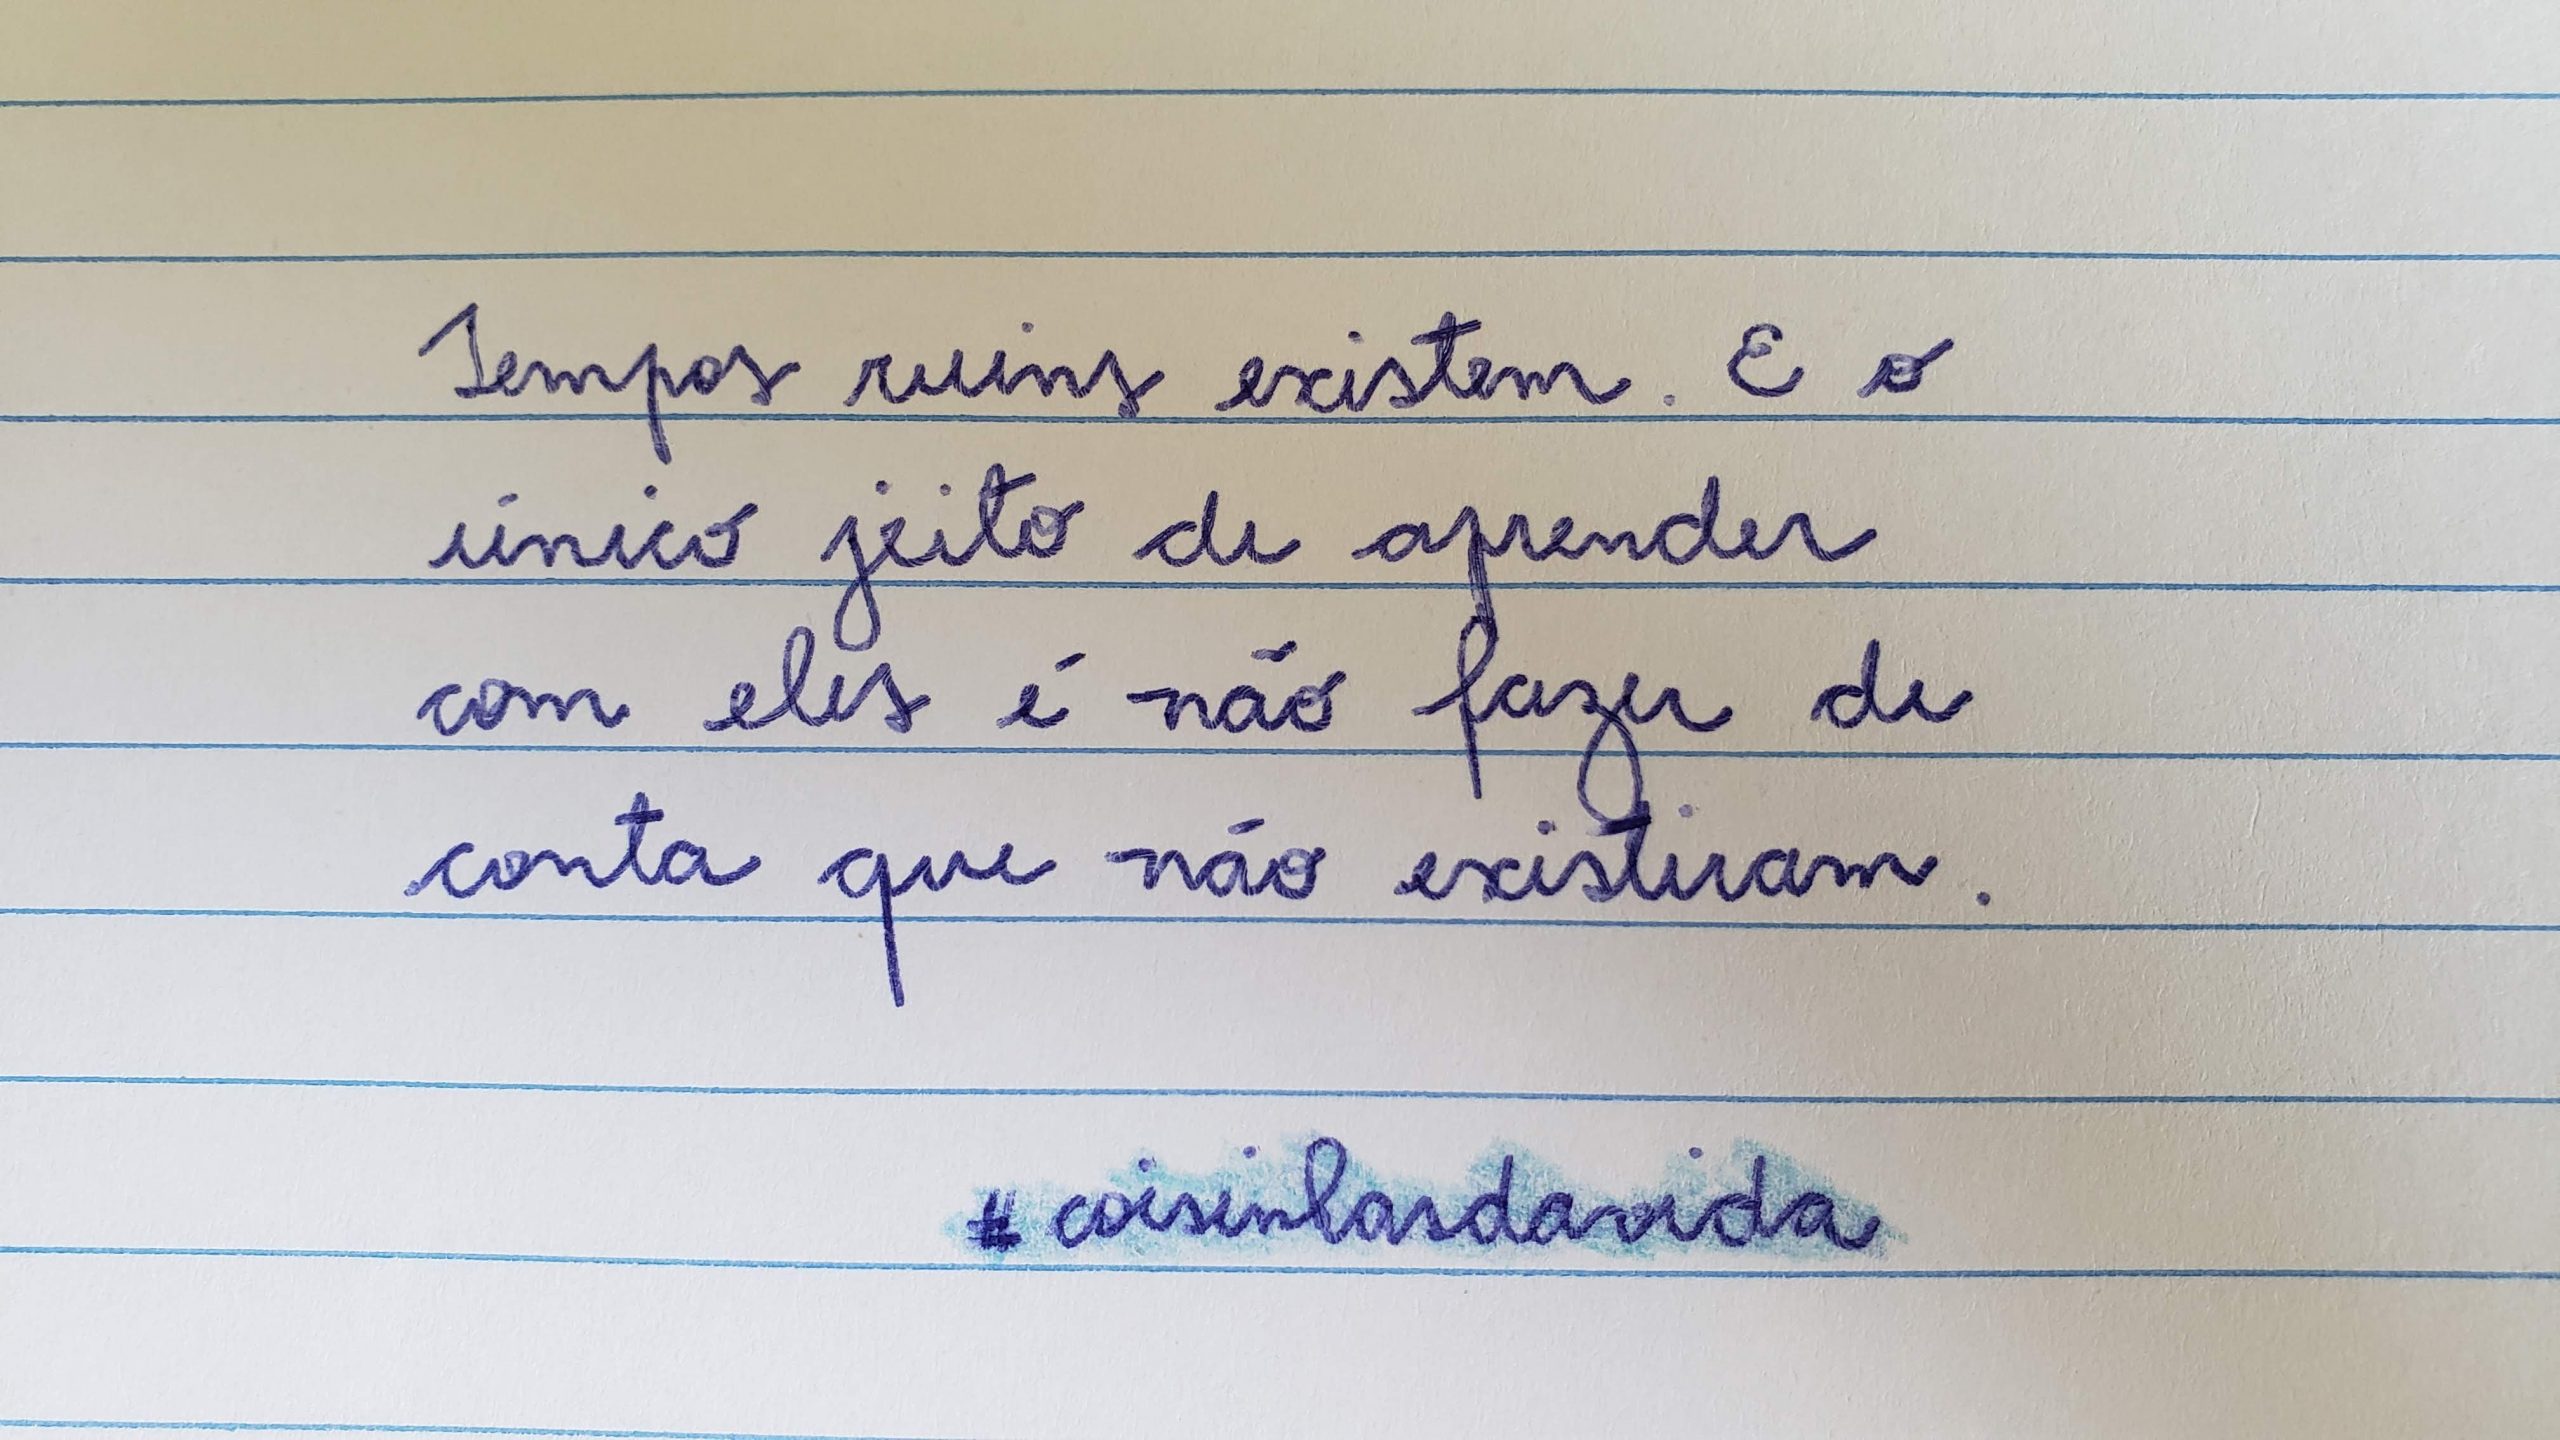 Tempos ruins existem. E o
único jeito de aprender
com eles é não fazer de
conta que não existiram.
#coisinhasdavida